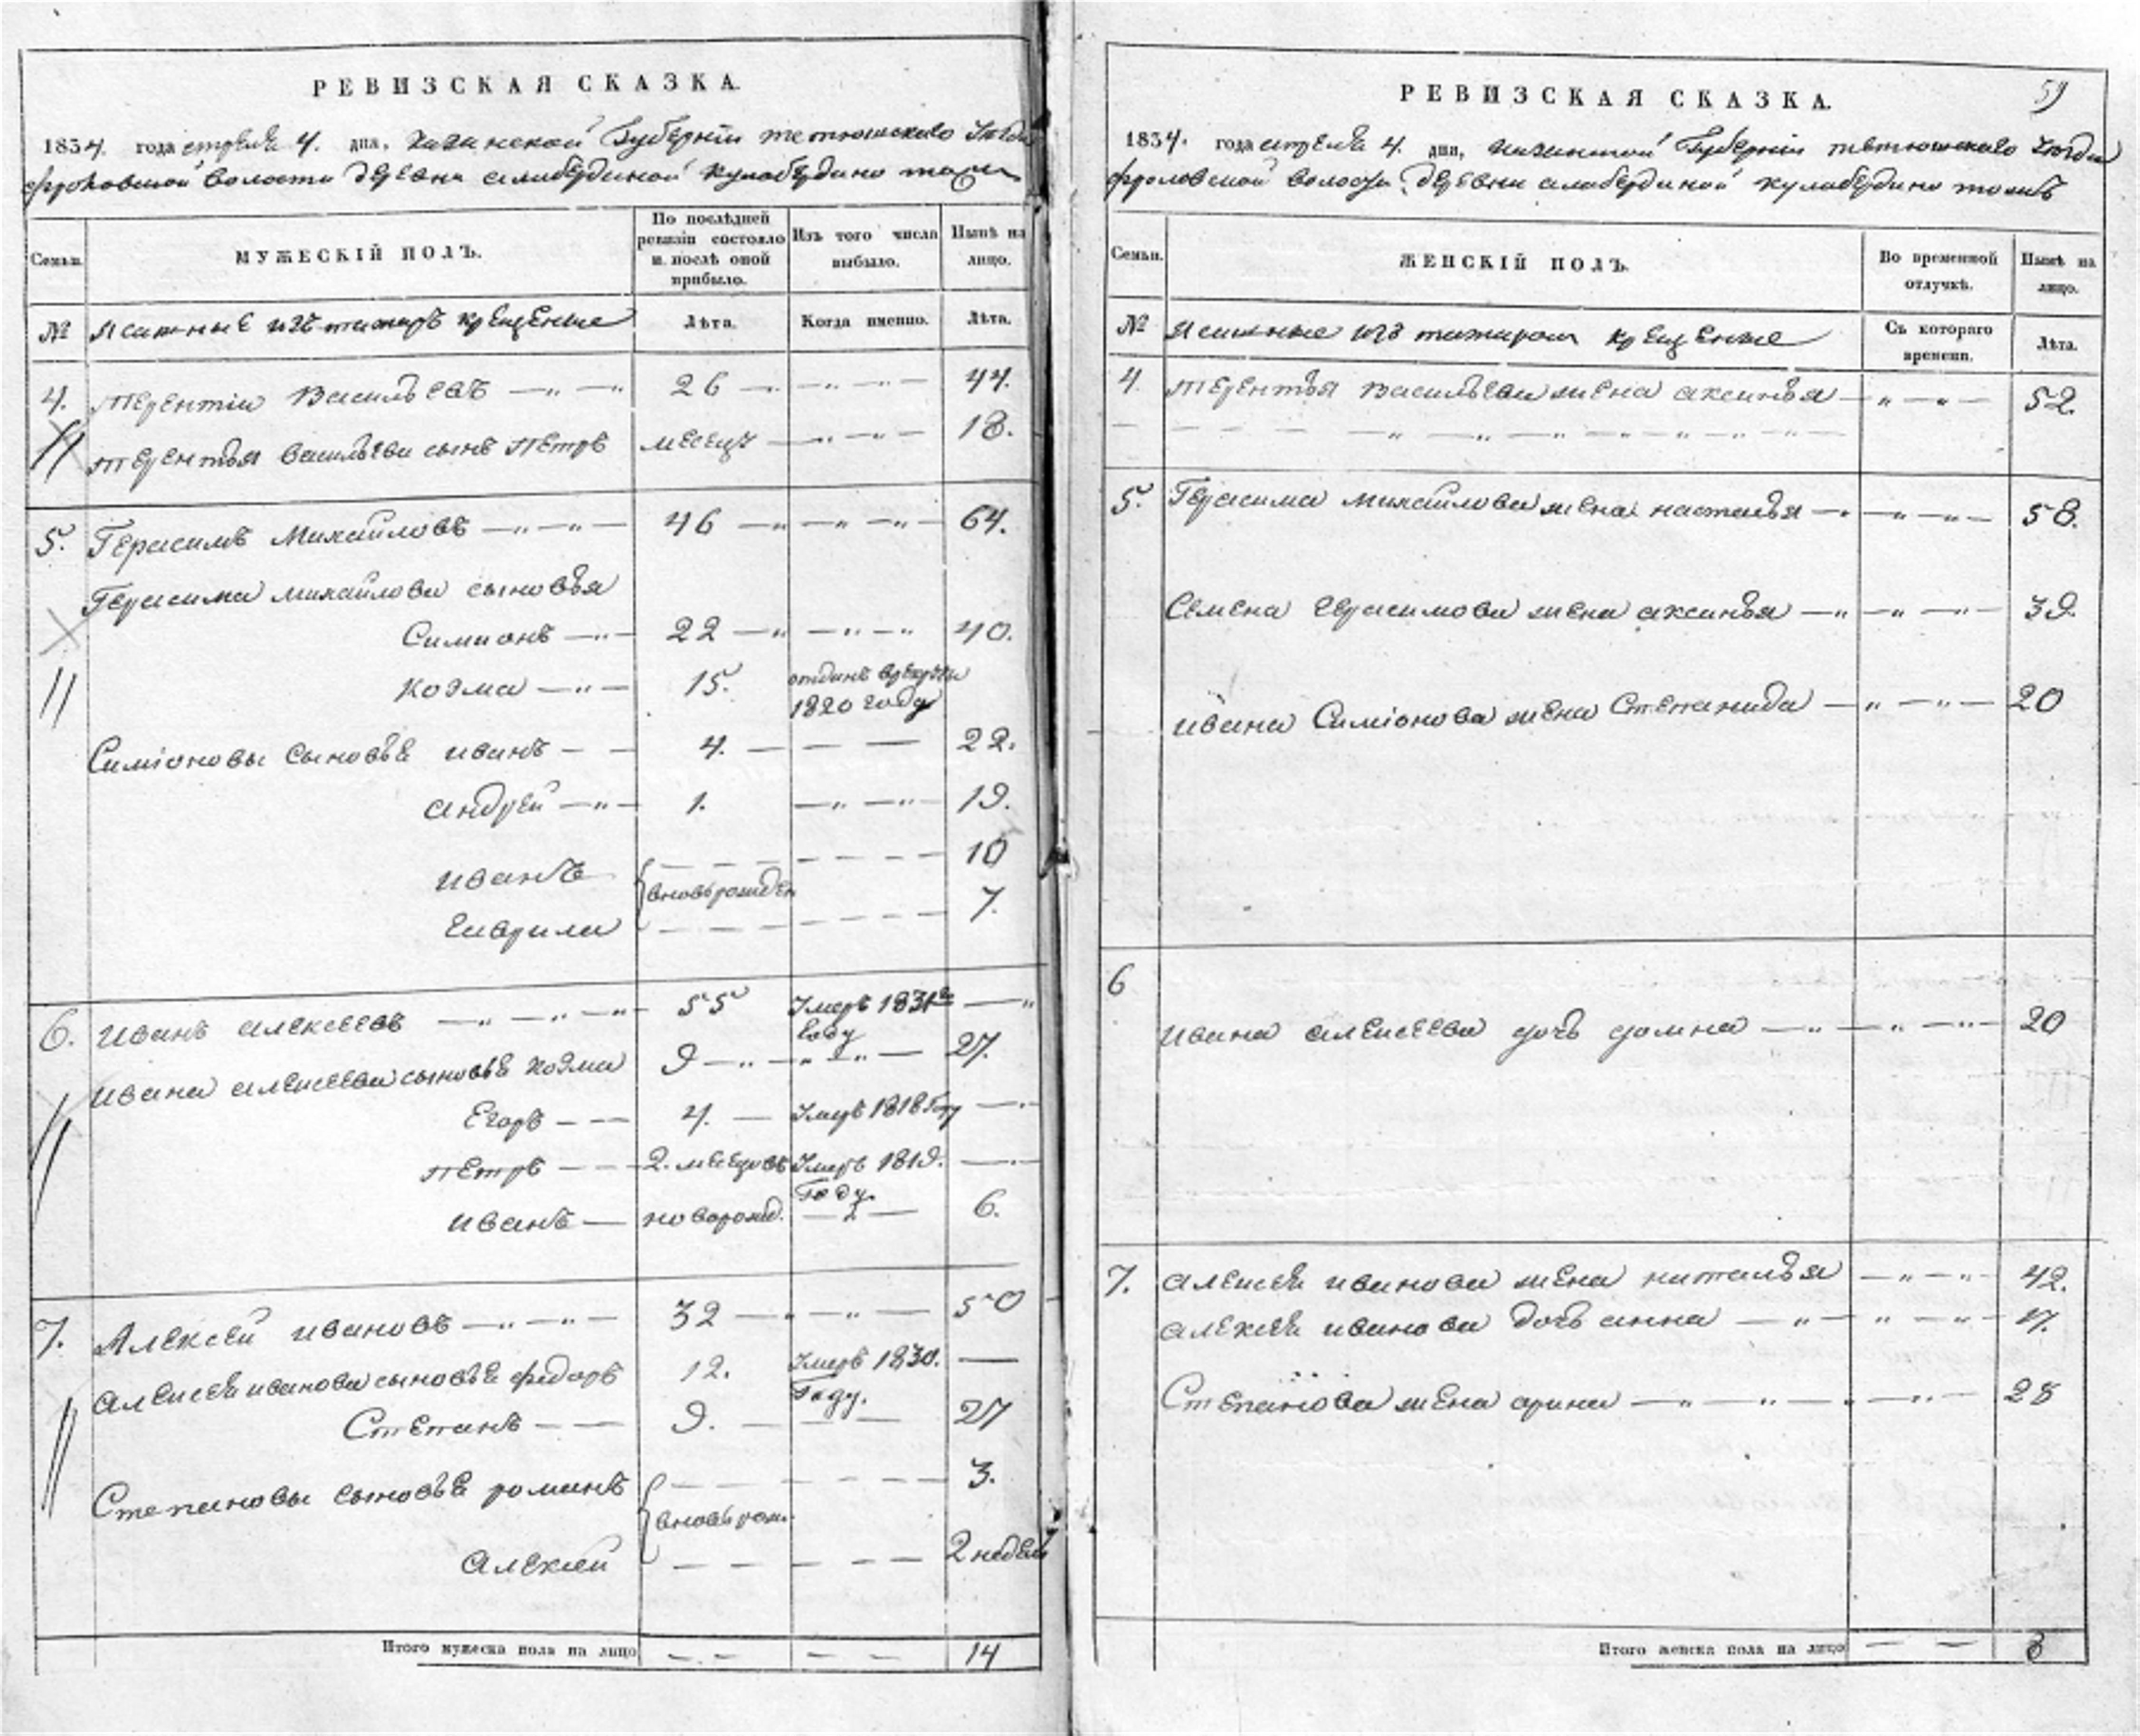 РЕВИЗСКАЯ СКАЗКА.
1834. года апреля 4. дня, Казанской Губернiи тетюшскаго Уезда
фроловской волости деревни алабердиной кулабердино тожъ
Семьи. МУЖЕСКIЙ ПОЛЪ. По послѣдней ревизiи состояло и послѣ оной прибыло. Изъ того числа выбыло. Нынѣ на лицо.
№ Ясашные изъ татаръ крещеные Лѣта. Когда именно. Лѣта.
4. Терентiи Васильевъ 26 44.
Терентья васильева сынъ Петръ месецъ 18.
5. Герасимъ Михайловъ 46 64.
Герасима михайлова сыновья
Симионъ 22 40.
Козма 15. отданъ в рекруты
1820 году
Симiоновы сыновья иванъ 4. 22.
андрей 1. 19.
иванъ 10
вновь рожден
гаврила 7.
6. Иванъ алексеевъ 55 Умеръ 1831го
году
ивана алексеева сыновья козма 9 27.
Егоръ 4. Умеръ 1818 Году
Петръ 2. месецовъ Умеръ 1819.
Году
иванъ новорожд. 6.
7. Алексей ивановъ 32 50
алексея иванова сыновья федоръ 12. Умеръ 1830.
Году.
Степанъ 9. 27
Степановы сыновья романъ 3.
вновь рож.
алексей 2 недели
Итого мужеска пола на лицо 14
59
РЕВИЗСКАЯ СКАЗКА.
1834. года апреля 4. дня, Казанской Губернiи тетюшскаго Уезда
фроловской волости деревни алабердиной кулабердино тожъ
Семьи. ЖЕНСКIЙ ПОЛЪ. Во временной отлучкѣ. Нынѣ на лицо.
№ Ясашные изъ татаръ крещеные Съ котораго времени. Лѣта.
4. Терентья васильева жена аксинья 52.
5. Герасима михайлова жена настасья 58.
Семена герасимова жена аксинья 39.
ивана Симiонова жена Степанида 20
6
ивана алексеева дочь домна 20
7. алексея иванова жена наталья 42.
алексея иванова дочь анна 17.
Степанова жена арина 28
Итого женска пола на лицо 8